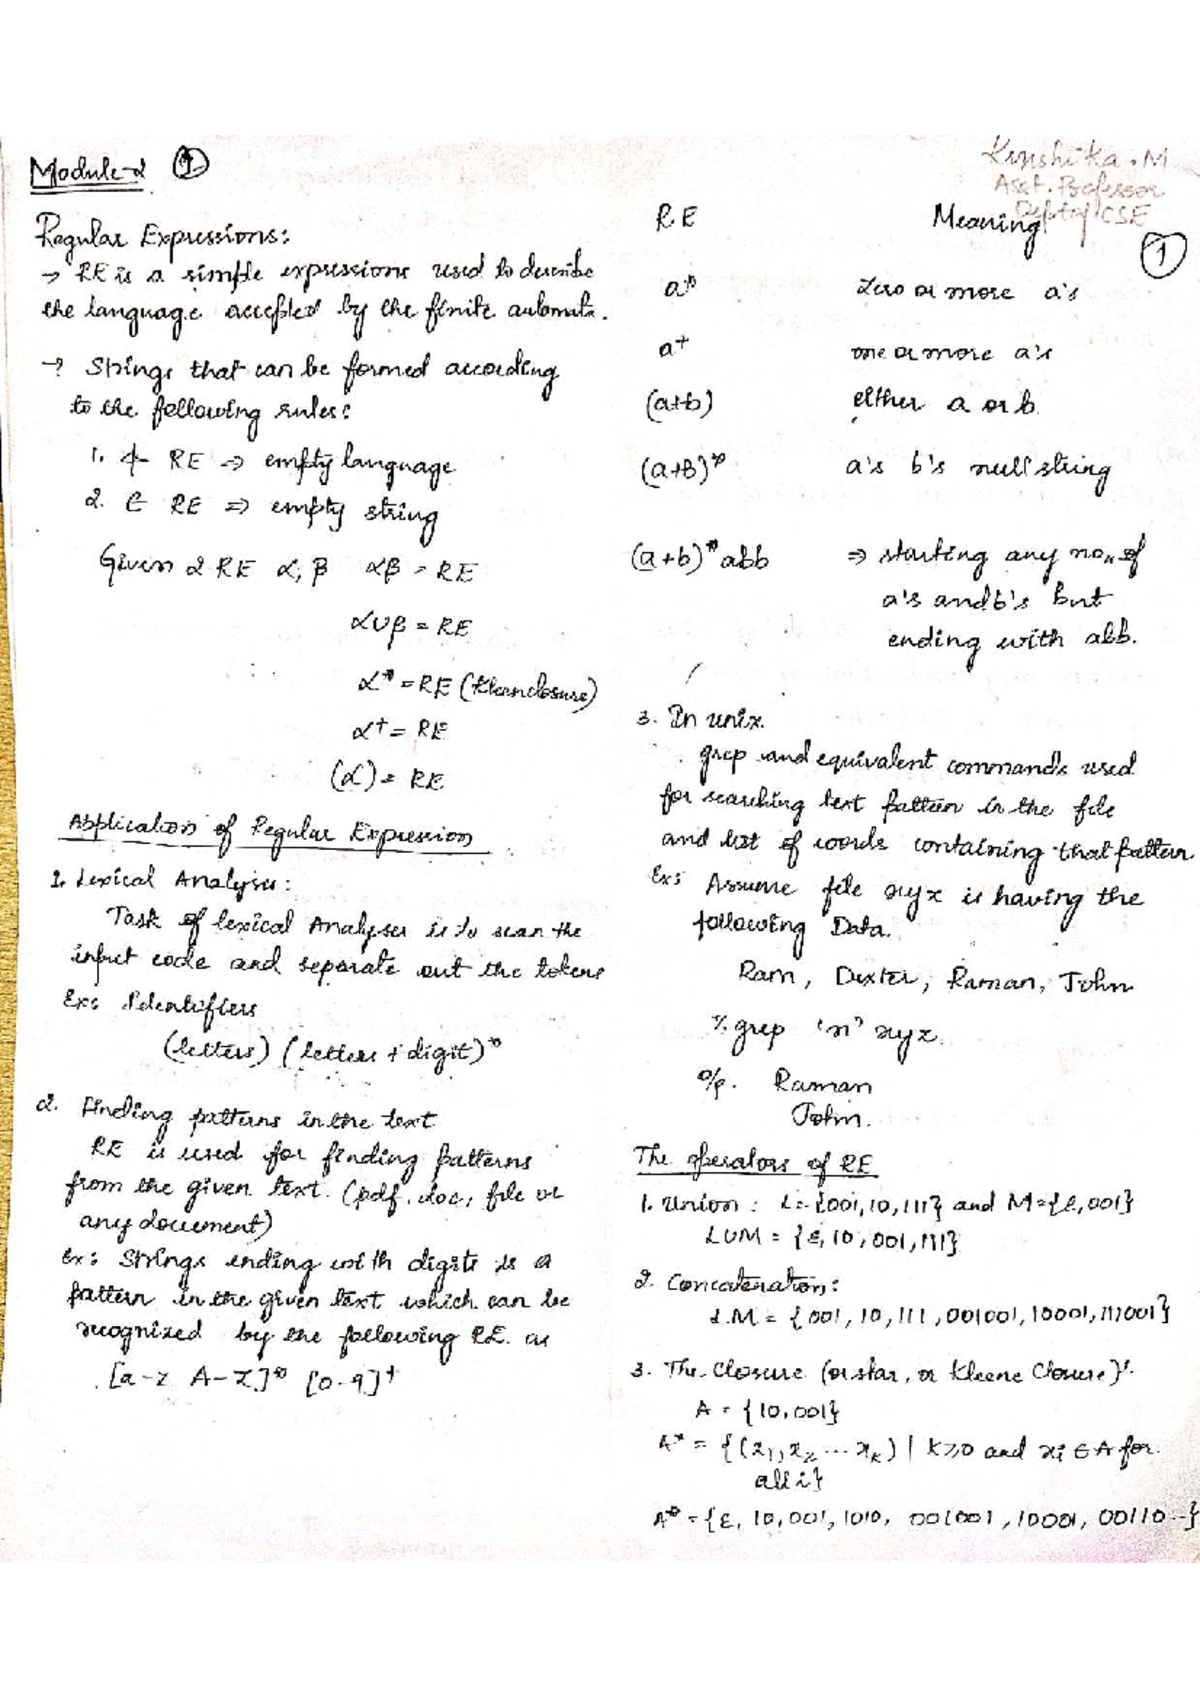 Module-2 ①
Regular Expressions:
→ RE is a simple expressions used to describe
the language accepted by the finite automata.
→ Strings that can be formed according
to the following rules:
1. ϕ RE ⇒ empty language
2. ∈ RE ⇒ empty string
Given 2 RE α, β αβ = RE
α∪β = RE
α* = RE (Kleenclosure)
α+ = RE
(α) = RE
Application of Regular Expression
1. Lexical Analysis:
Task of lexical Analyser is to scan the
input code and separate out the tokens
Ex: Identifiers
(letters) (letters + digit)*
2. Finding patterns in the text
RE is used for finding patterns
from the given text. (pdf, doc, file or
any document)
Ex: Strings ending with digits is a
pattern in the given text which can be
recognized by the following RE. as
[a-z A-Z]* [0-9]+
Asst. Professor
Dept of CSE
RE Meaning
①
a* zero or more a's
a+ one or more a's
(a+b) either a or b
(a+b)* a's b's null string
(a+b)*abb ⇒ starting any no. of
a's and b's but
ending with abb.
3. In unix.
grep and equivalent commands used
for searching text pattern in the file
and list of words containing that pattern
Ex: Assume file xyz is having the
following Data.
Ram, Dexter, Raman, John
% grep 'n' xyz.
o/p. Raman
John.
The operators of RE
1. Union: L = {001,10,111} and M={ε,001}
L∪M = {ε,10,001,111}
2. Concatenation:
L.M = {001,10,111,001001,10001,111001}
3. The Closure (or star, or Kleene Closure):
A = {10,001}
A* = {(x₁,x₂ ... xₖ) | K≥0 and xi ∈ A for
all i}
A* = {ε, 10,001,1010, 001001,10001, 00110 --}